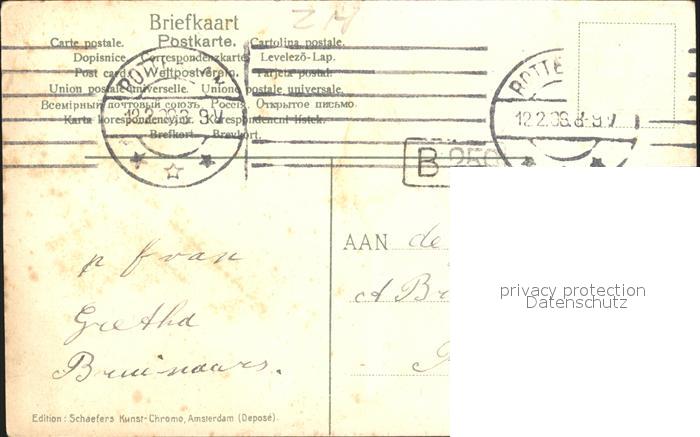 ZH
Briefkaart
Postkarte.
Carte postale. Cartolina postale.
Dopisnice. Correspondenzkarte. Levelező-Lap.
Post card. Weltpostverein. Tarjeta postal.
Union postale universelle. Unione postale universale.
Всемірный почтовый союзъ Россія. Открытое письмо.
Karta korespondencyjna. Korespondencni listek.
Brefkort. Brevkort.
12.2.06.8-9V
ROTTE
12.2.06.8-9V
B 250
AAN de
A Br
p f van
Gretha
Bruinaars.
privacy protection
Datenschutz
Edition: Schaefers Kunst-Chromo, Amsterdam (Deposé).